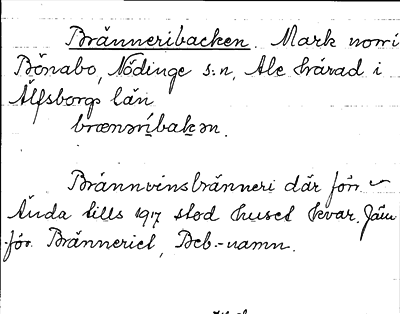 Bränneribacken. Mark norr i
Bönabo, Nödinge s:n, Ale härad i
Älfsborgs län
brœnəríbakən.
Brännvinsbränneri där förr –
Ända tills 1917 stod huset kvar. Jäm
för Bränneriet, Beb.-namn.